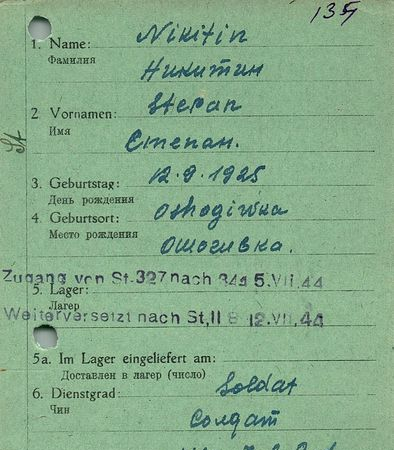 135
1. Name: Nikitin
Фамилия Никитин
2. Vornamen: Stepan
Имя Степан.
St
3. Geburtstag: 12.9.1925
День рождения
4. Geburtsort: Oshogiwka
Место рождения Ошогивка.
Zugang von St.327 nach 344 5.VII.44
5. Lager:
Лагер
Weiterversetzt nach St, II B 12.VII.44
5a. Im Lager eingeliefert am:
Доставлен в лагер (число)
6. Dienstgrad: Soldat
Чин Солдат